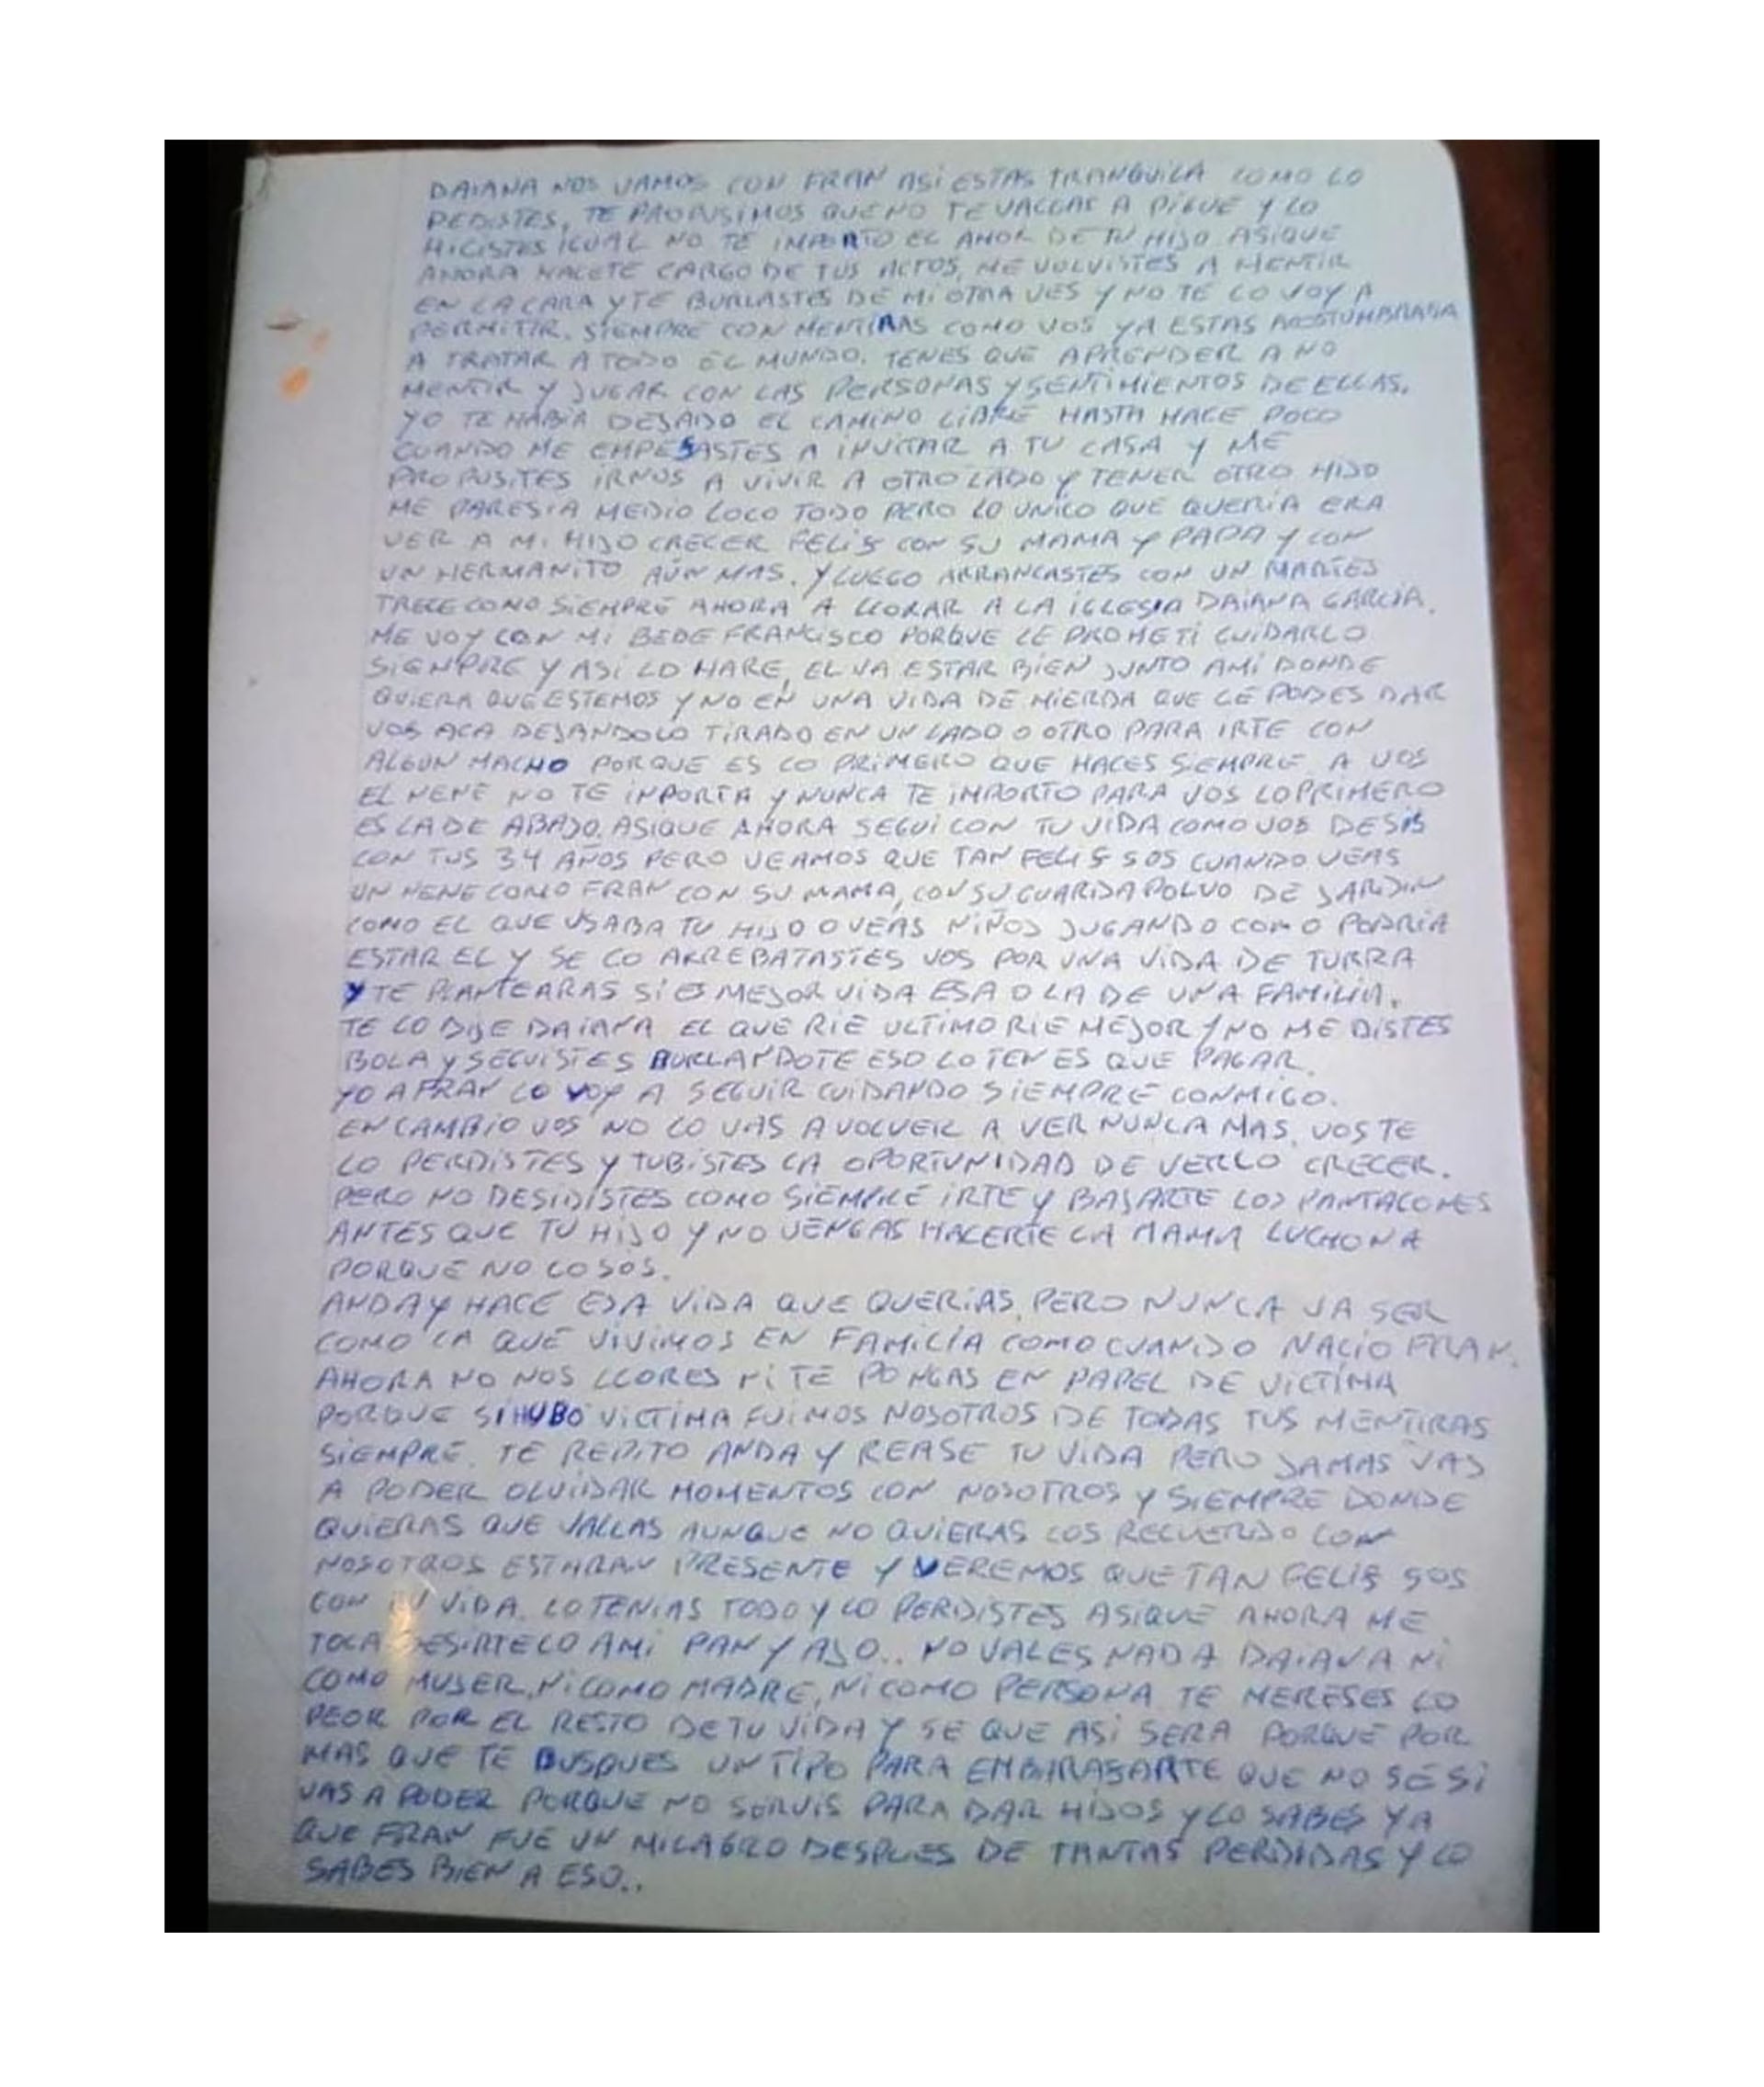 DAIANA NOS VAMOS CON FRAN ASI ESTAS TRANQUILA COMO LO
PEDISTES, TE PROPUSIMOS QUE NO TE VALLAS A PIGUE Y LO
HICISTES IGUAL NO TE IMPORTO EL AMOR DE TU HIJO ASIQUE
AHORA HACETE CARGO DE TUS ACTOS, ME VOLVISTES A MENTIR
EN LA CARA Y TE BURLASTES DE MI OTRA VES Y NO TE LO VOY A
PERMITIR. SIEMPRE CON MENTIRAS COMO VOS YA ESTAS ACOSTUMBRADA
A TRATAR A TODO EL MUNDO. TENES QUE APRENDER A NO
MENTIR Y JUGAR CON LAS PERSONAS Y SENTIMIENTOS DE ELLAS.
YO TE HABIA DEJADO EL CAMINO LIBRE HASTA HACE POCO
CUANDO ME EMPESASTES A INVITAR A TU CASA Y ME
PROPUSITES IRNOS A VIVIR A OTRO LADO Y TENER OTRO HIJO
ME PARESIA MEDIO LOCO TODO PERO LO UNICO QUE QUERIA ERA
VER A MI HIJO CRECER FELIS CON SU MAMA Y PAPA Y CON
UN HERMANITO AÚN MAS. Y LUEGO ARRANCASTES CON UN MARTES
TRECE COMO SIEMPRE AHORA A LLORAR A LA IGLESIA DAIANA GARCIA.
ME VOY CON MI BEBE FRANCISCO PORQUE LE PROMETI CUIDARLO
SIEMPRE Y ASI LO HARE, EL VA ESTAR BIEN JUNTO AMI DONDE
QUIERA QUE ESTEMOS Y NO EN UNA VIDA DE MIERDA QUE LE PODES DAR
VOS ACA DEJANDOLO TIRADO EN UN LADO O OTRO PARA IRTE CON
ALGUN MACHO PORQUE ES LO PRIMERO QUE HACES SIEMPRE A VOS
EL NENE NO TE INPORTA Y NUNCA TE IMPORTO PARA VOS LO PRIMERO
ES LA DE ABAJO. ASIQUE AHORA SEGUI CON TU VIDA COMO VOS DESIS
CON TUS 34 AÑOS PERO VEAMOS QUE TAN FELIS SOS CUANDO VEAS
UN NENE COMO FRAN CON SU MAMA, CON SU GUARDAPOLVO DE JARDIN
COMO EL QUE USABA TU HIJO O VEAS NIÑOS JUGANDO COMO PODRIA
ESTAR EL Y SE LO ARREBATASTES VOS POR UNA VIDA DE TURRA
Y TE PLANTEARAS SI ES MEJOR VIDA ESA O LA DE UNA FAMILIA.
TE LO DIJE DAIANA EL QUE RIE ULTIMO RIE MEJOR Y NO ME DISTES
BOLA Y SEGUISTES BURLANDOTE ESO LO TENES QUE PAGAR.
YO A FRAN LO VOY A SEGUIR CUIDANDO SIEMPRE CONMIGO.
EN CAMBIO VOS NO LO VAS A VOLVER A VER NUNCA MAS. VOS TE
LO PERDISTES Y TUBISTES LA OPORTUNIDAD DE VERLO CRECER.
PERO NO DESIDISTES COMO SIEMPRE IRTE Y BAJARTE LOS PANTALONES
ANTES QUE TU HIJO Y NO VENGAS HACERTE LA MAMA LUCHONA
PORQUE NO LO SOS.
ANDA Y HACE ESA VIDA QUE QUERIAS, PERO NUNCA VA SER
COMO LA QUE VIVIMOS EN FAMILIA COMO CUANDO NACIO FRAN.
AHORA NO NOS LLORES NI TE PONGAS EN PAPEL DE VICTIMA
PORQUE SI HUBO VICTIMA FUIMOS NOSOTROS DE TODAS TUS MENTIRAS
SIEMPRE. TE REPITO ANDA Y REASE TU VIDA PERO JAMAS VAS
A PODER OLVIDAR MOMENTOS CON NOSOTROS Y SIEMPRE DONDE
QUIERAS QUE VALLAS AUNQUE NO QUIERAS LOS RECUERDO CON
NOSOTROS ESTARAN PRESENTE Y VEREMOS QUE TAN FELIS SOS
CON TU VIDA. LO TENIAS TODO Y LO PERDISTES ASIQUE AHORA ME
TOCA DESIRTELO AMI PAN Y AJO.. NO VALES NADA DAIANA NI
COMO MUJER, NI COMO MADRE, NI COMO PERSONA TE MERESES LO
PEOR POR EL RESTO DE TU VIDA Y SE QUE ASI SERA PORQUE POR
MAS QUE TE BUSQUES UN TIPO PARA EMBARASARTE QUE NO SÉ SI
VAS A PODER PORQUE NO SERVIS PARA DAR HIJOS Y LO SABES YA
QUE FRAN FUE UN MILAGRO DESPUES DE TANTAS PERDIDAS Y LO
SABES BIEN A ESO..